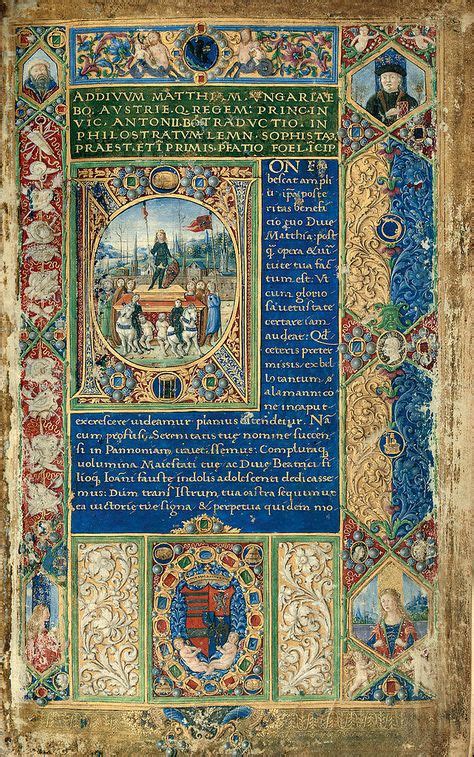 AD DIVVM MATTHIAM. VNGARIAE
BO. AVSTRIE. Q. REGEM: PRINCIPI
IC. ANTONII. BO. TRADVCTIO. IN
PHILOSTRATVM LEMN. SOPHISTA
PRAEST. ETI PRIMIS. PFATIO FOELICIP
ON
bescat ampli
ipa poste
ritas benefi
cio tuo Diue
Matthia: post
q opera & uir
tute tua fac
tum est: Vt
cum glorio
sa uetustate
certare iam
audeat: Qd
ceteris preter
missis ex bel
lo tantum
alamannico
ne in caput
excrescere uideamur planius ostendetur. Na
cum profliga Serenitatis tue nomine succen
si in Pannoniam essemus: Compluriaq
uolumina Maiestati tue ac Diue Beatrici fi
lioq Ioani fauste indolis adolescenti dedicasse
mus: Dum trans Istrum tua castra sequimur
ca uictorie tue signa & perpetua quidem mo